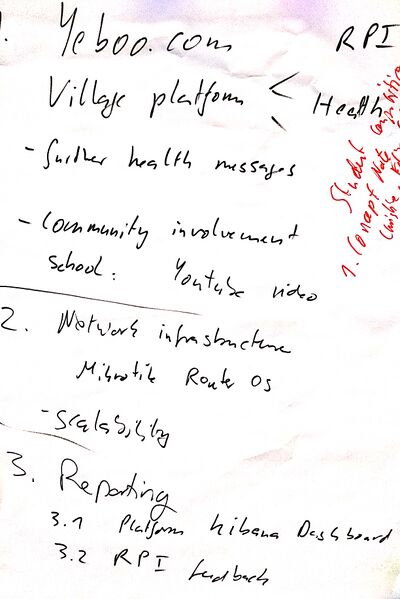 1. Yeboo.com RPI
Village platform < Health
- Further health messages
- Community involvement
School: Youtube video
2. Network infrastructure
Mikrotik Router OS
- Scalability
3. Reporting
3.1 Platform Kibana Dashboard
3.2 RPI feedback
Student
1. Concept Note